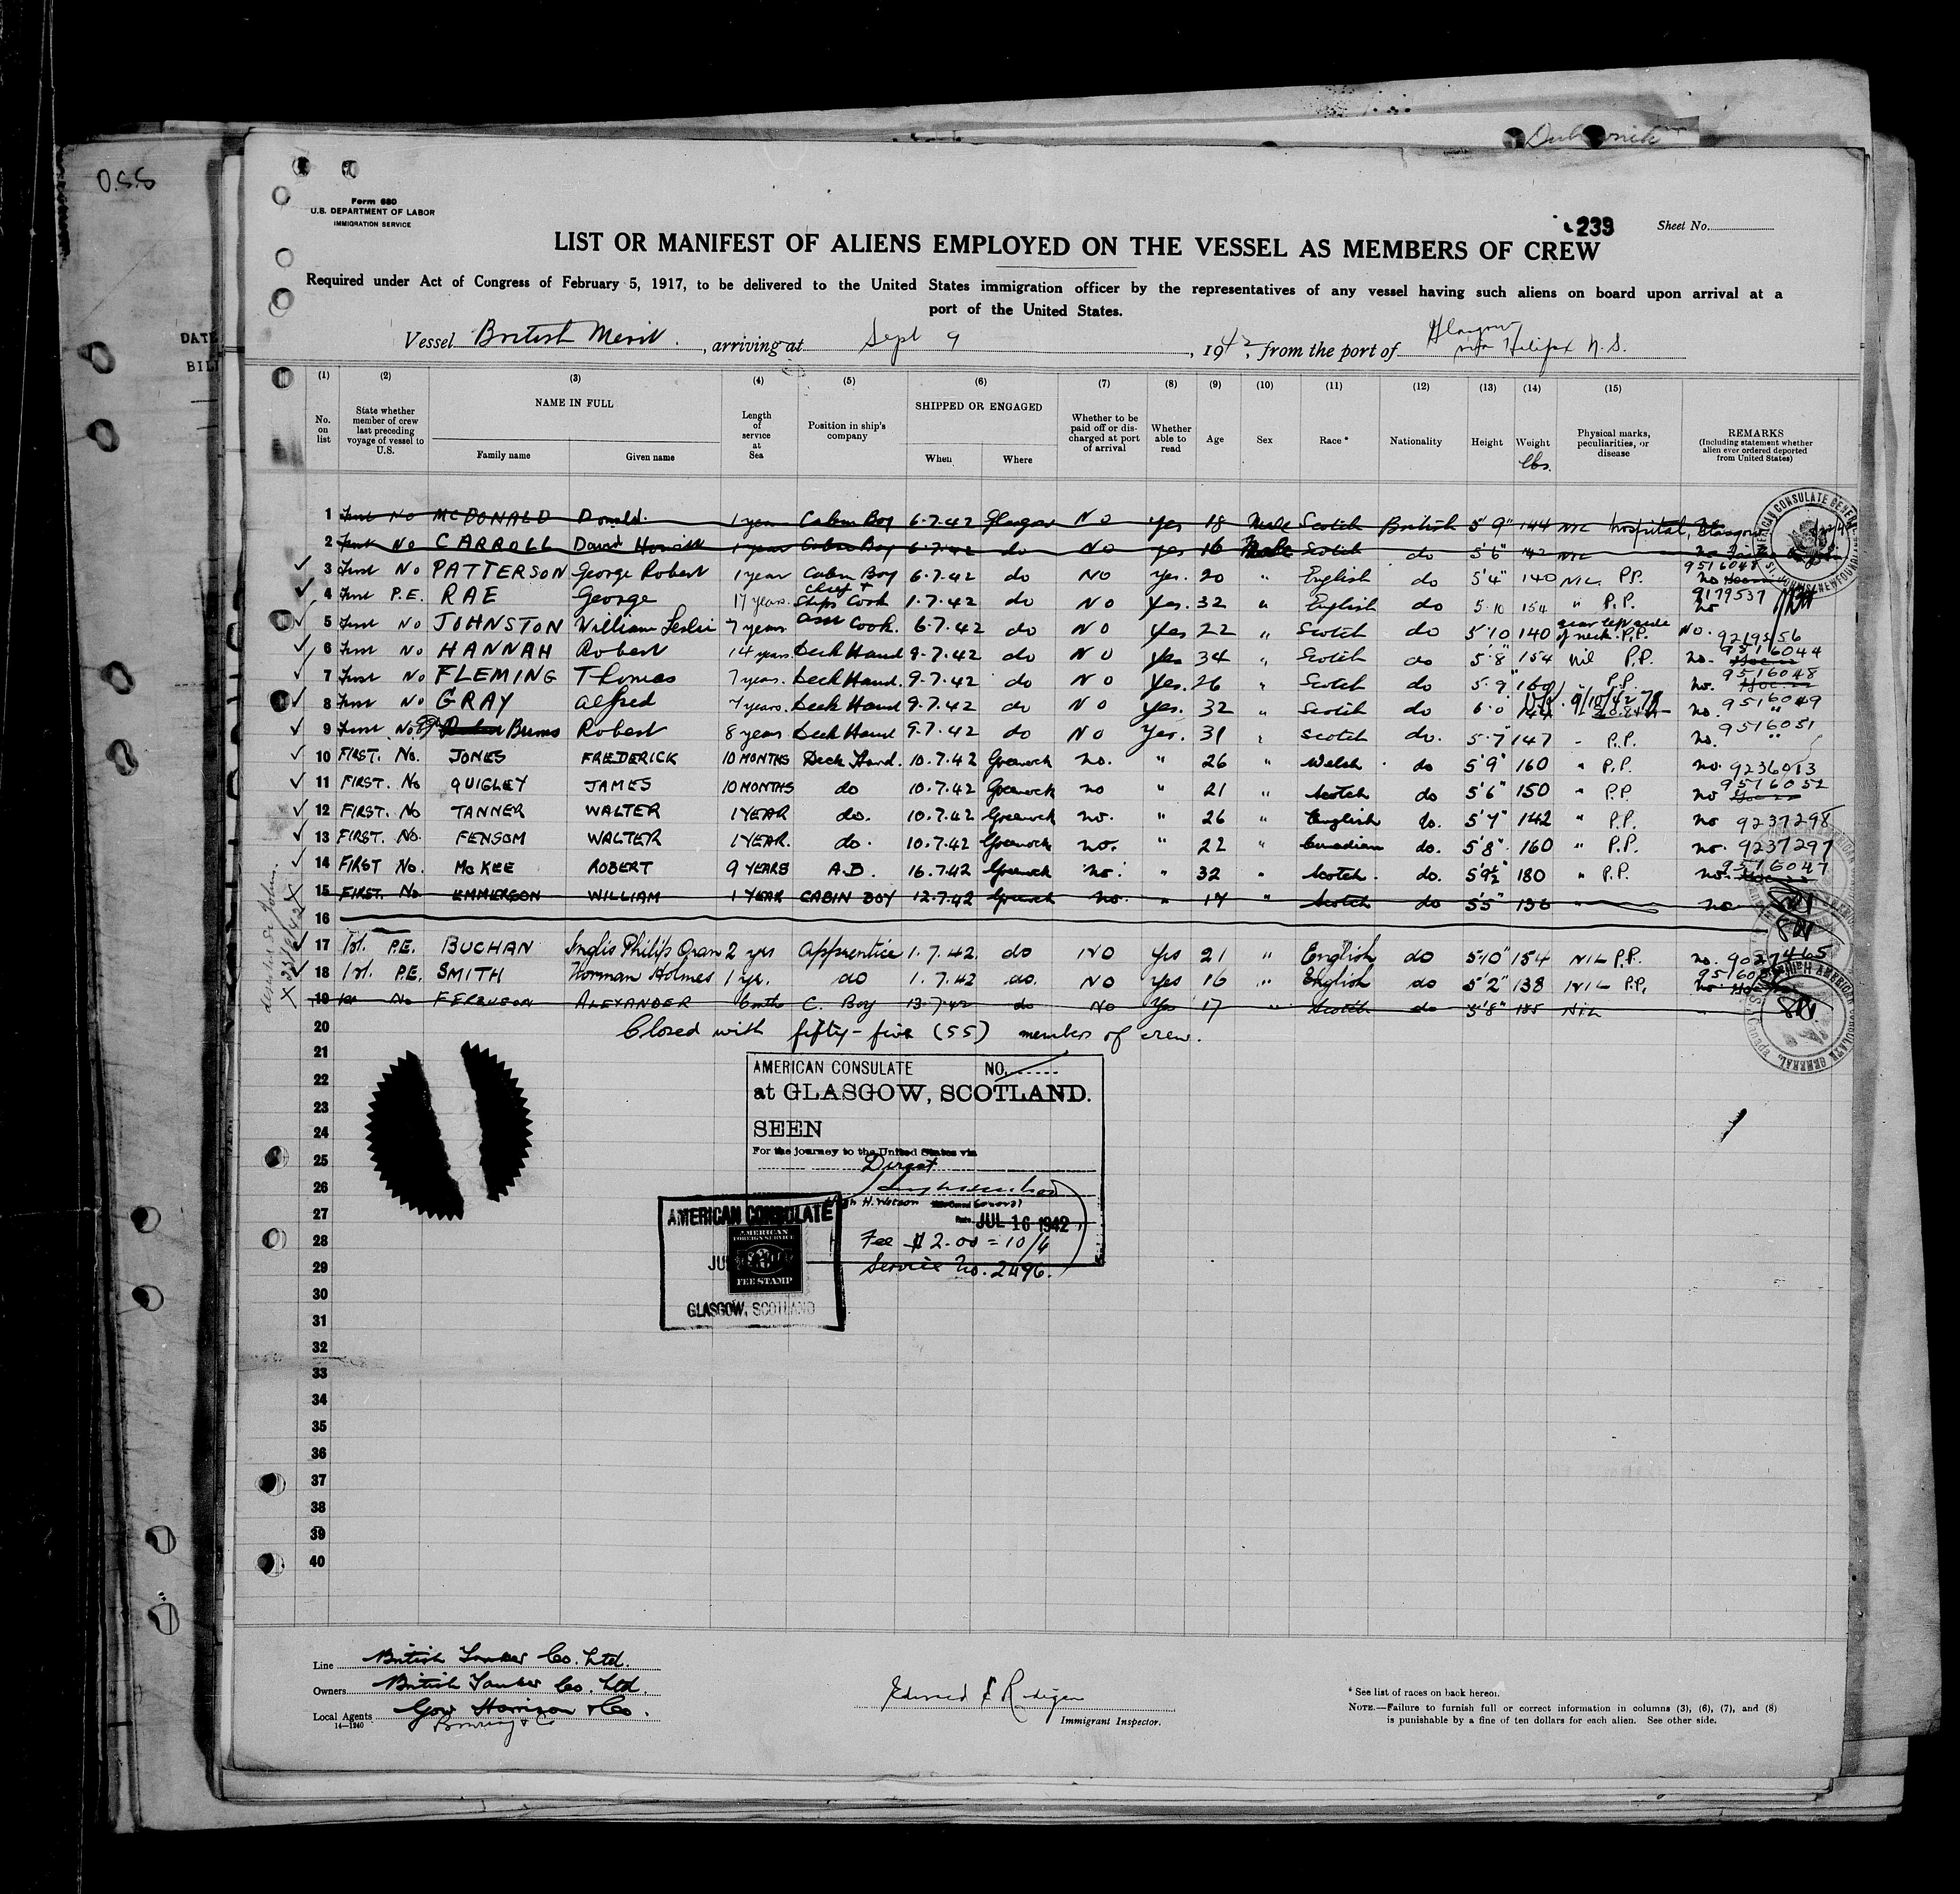 O.S.S
DATE
BILL
Form 680
U.S. DEPARTMENT OF LABOR
IMMIGRATION SERVICE
239
Sheet No.
LIST OR MANIFEST OF ALIENS EMPLOYED ON THE VESSEL AS MEMBERS OF CREW
Required under Act of Congress of February 5, 1917, to be delivered to the United States immigration officer by the representatives of any vessel having such aliens on board upon arrival at a
port of the United States.
Vessel British Merit, arriving at Sept 9, 1942, from the port of Glasgow via Halifax N.S.
(1) (2) (3) (4) (5) (6) (7) (8) (9) (10) (11) (12) (13) (14) (15)
No. on list
State whether member of crew last preceding voyage of vessel to U.S.
NAME IN FULL
Family name Given name
Length of service at Sea
Position in ship's company
SHIPPED OR ENGAGED
When Where
Whether to be paid off or discharged at port of arrival
Whether able to read
Age
Sex
Race*
Nationality
Height
Weight lbs.
Physical marks, peculiarities, or disease
REMARKS
(Including statement whether alien ever ordered deported from United States)
1 First No McDONALD Donald. 1 year Cabin Boy 6.7.42 Glasgow NO Yes 18 Male Scotch British 5'9" 144 NIL hospital, Glasgow
2 First No CARROLL David Howitt 1 year Cabin Boy 6.7.42 do NO yes 16 Male Scotch do 5'6" 142 NIL no
3 First No PATTERSON George Robert 1 year Cabin Boy 6.7.42 do NO yes. 20 " English do 5'4" 140 NIL P.P. no 9516045
4 First P.E. RAE George 17 years. Chief + Ships Cook 1.7.42 do NO Yes. 32 " English do 5.10 154 " P.P. no 9179537
5 First No JOHNSTON William Leslie 7 years Asst Cook. 6.7.42 do NO Yes 22 " Scotch do 5'10 140 scar left side of neck. P.P. No. 9219556
6 First No HANNAH Robert 14 years. Deck Hand 9.7.42 do NO Yes 34 " Scotch do 5'8" 154 nil P.P. no. 9516044
7 First No FLEMING Thomas 7 years. Deck Hand. 9.7.42 do NO Yes. 26 " Scotch do 5.9" 160 " P.P. no. 9516048
8 First No GRAY Alfred 7 years. Deck Hand 9.7.42 do NO Yes. 32 " Scotch do 6.0 no. 9516049
9 First No Burns Robert 8 years Deck Hand 9.7.42 do NO Yes. 31 " Scotch do. 5.7" 147 - P.P. no. 9516051
10 FIRST. No. JONES FREDERICK 10 MONTHS Deck Hand. 10.7.42 Greenock no. " 26 " Welsh do 5'9" 160 " P.P. no. 9236013
11 FIRST. No QUIGLEY JAMES 10 MONTHS do 10.7.42 Greenock no " 21 " Scotch do 5'6" 150 " P.P. no 9516052
12 FIRST. No TANNER WALTER 1 YEAR do. 10.7.42 Greenock no. " 26 " English do. 5'7" 142 " P.P. no 9237298
13 FIRST. No. FENSOM WALTER 1 YEAR. do. 10.7.42 Greenock no. " 22 " Canadian do. 5'8" 160 " P.P. no. 9237297
14 FIRST No. McKEE ROBERT 9 YEARS A.B. 16.7.42 Greenock no. " 32 " Scotch. do. 5'9½ 180 " P.P. no. 9516047
15 FIRST. No EMMERSON WILLIAM 1 YEAR CABIN BOY 12.7.42 Greenock no. " 17 " Scotch do 5'5" 136 " no
16
17 1st. P.E. BUCHAN Inglis Philip Oran 2 yrs Apprentice 1.7.42. do NO Yes 21 " English do 5'10" 154 NIL P.P. no. 9027465
18 1st. P.E. SMITH Norman Holmes 1 yr. do 1.7.42 do. NO Yes 16 " English do 5'2" 138 NIL P.P. no.
19 1st No FERGUSON ALEXANDER 6 mths C. Boy 13.7.42 do NO Yes 17 " Scotch do 5'8" 135 NIL "
20 Closed with fifty-five (55) members of crew.
21
22
23
24
25
26
27
28
29
30
31
32
33
34
35
36
37
38
39
40
AMERICAN CONSULATE NO.
at GLASGOW, SCOTLAND.
SEEN
For the journey to the United States via
Direct
JUL 16 1942
Fee $2.00 = 10/
Service No. 2496.
AMERICAN CONSULATE
AMERICAN FOREIGN SERVICE
FEE STAMP
GLASGOW, SCOTLAND
Line British Tanker Co. Ltd.
Owners British Tanker Co. Ltd.
Local Agents Gow Harrison & Co.
Bowring & Co
14—1240
Immigrant Inspector.
* See list of races on back hereof.
NOTE.—Failure to furnish full or correct information in columns (3), (6), (7), and (8)
is punishable by a fine of ten dollars for each alien. See other side.